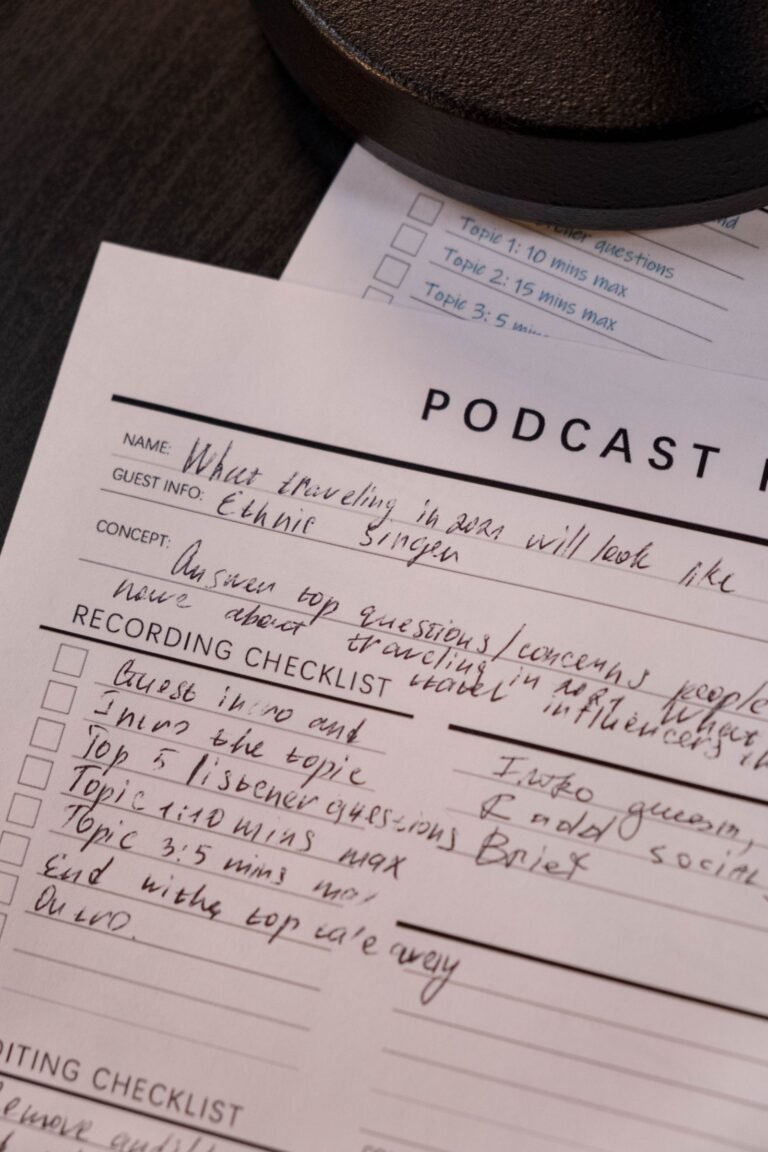 questions
Topic 1: 10 mins max
Topic 2: 15 mins max
Topic 3: 5
PODCAST
NAME: What traveling in 2021 will look like
GUEST INFO: Ethnic Singer
CONCEPT: Answer top questions/concerns people
have about traveling in 2021 what
travel influencers
RECORDING CHECKLIST
Guest intro and
Intro the topic
Top 5 listener questions
Topic 1:10 mins max
Topic 3:5 mins
End with top
Outro.
Intro
social
Brief
EDITING CHECKLIST